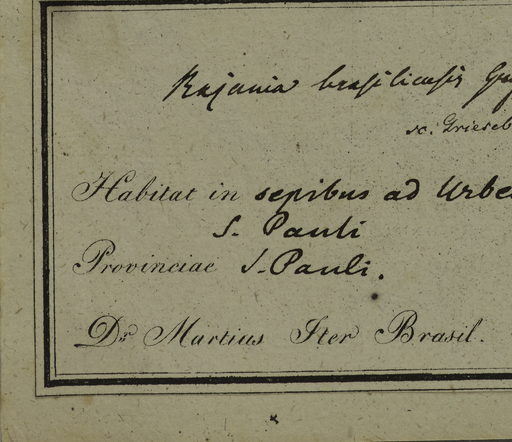 Rajania brasiliensis
sc. Griseb
Habitat in sepibus ad Urbe
S. Pauli
Provinciae S. Pauli.
Dr. Martius Iter Brasil.